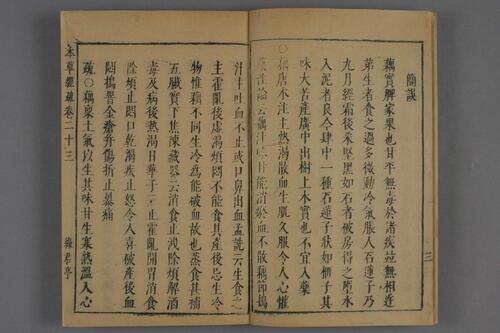 簡誤
藕實脾家果也甘平無毒於諸疾並無相迕
弟生者食之過多微動冷氣脹人石蓮子乃
九月經霜後采堅黑如石者破房得之墮水
入泥者良今肆中一種石蓮子狀如榧子其
味大苦產廣中出樹上木實也不宜入藥
○藕唐本注主熱渴散血生肌久服令人心懽
藥性論云藕汁味甘能消瘀血不散藕節搗
三
汁主吐血不止或口鼻出血孟詵云生食之
主霍亂後虛渴煩悶不能食其產後忌生冷
物惟藕不同生冷為能破血故也蒸食其補
五臟實下焦陳藏器云消食止洩除煩解酒
毒及病後熱渴日華子云止霍亂開胃消食
除煩止悶口乾渴疾止怒令人喜破產後血
悶搗罯金瘡并傷折止暴痛
疏○藕稟土氣以生其味甘生寒熱溫入心
本草經疏卷二十三
綠君亭